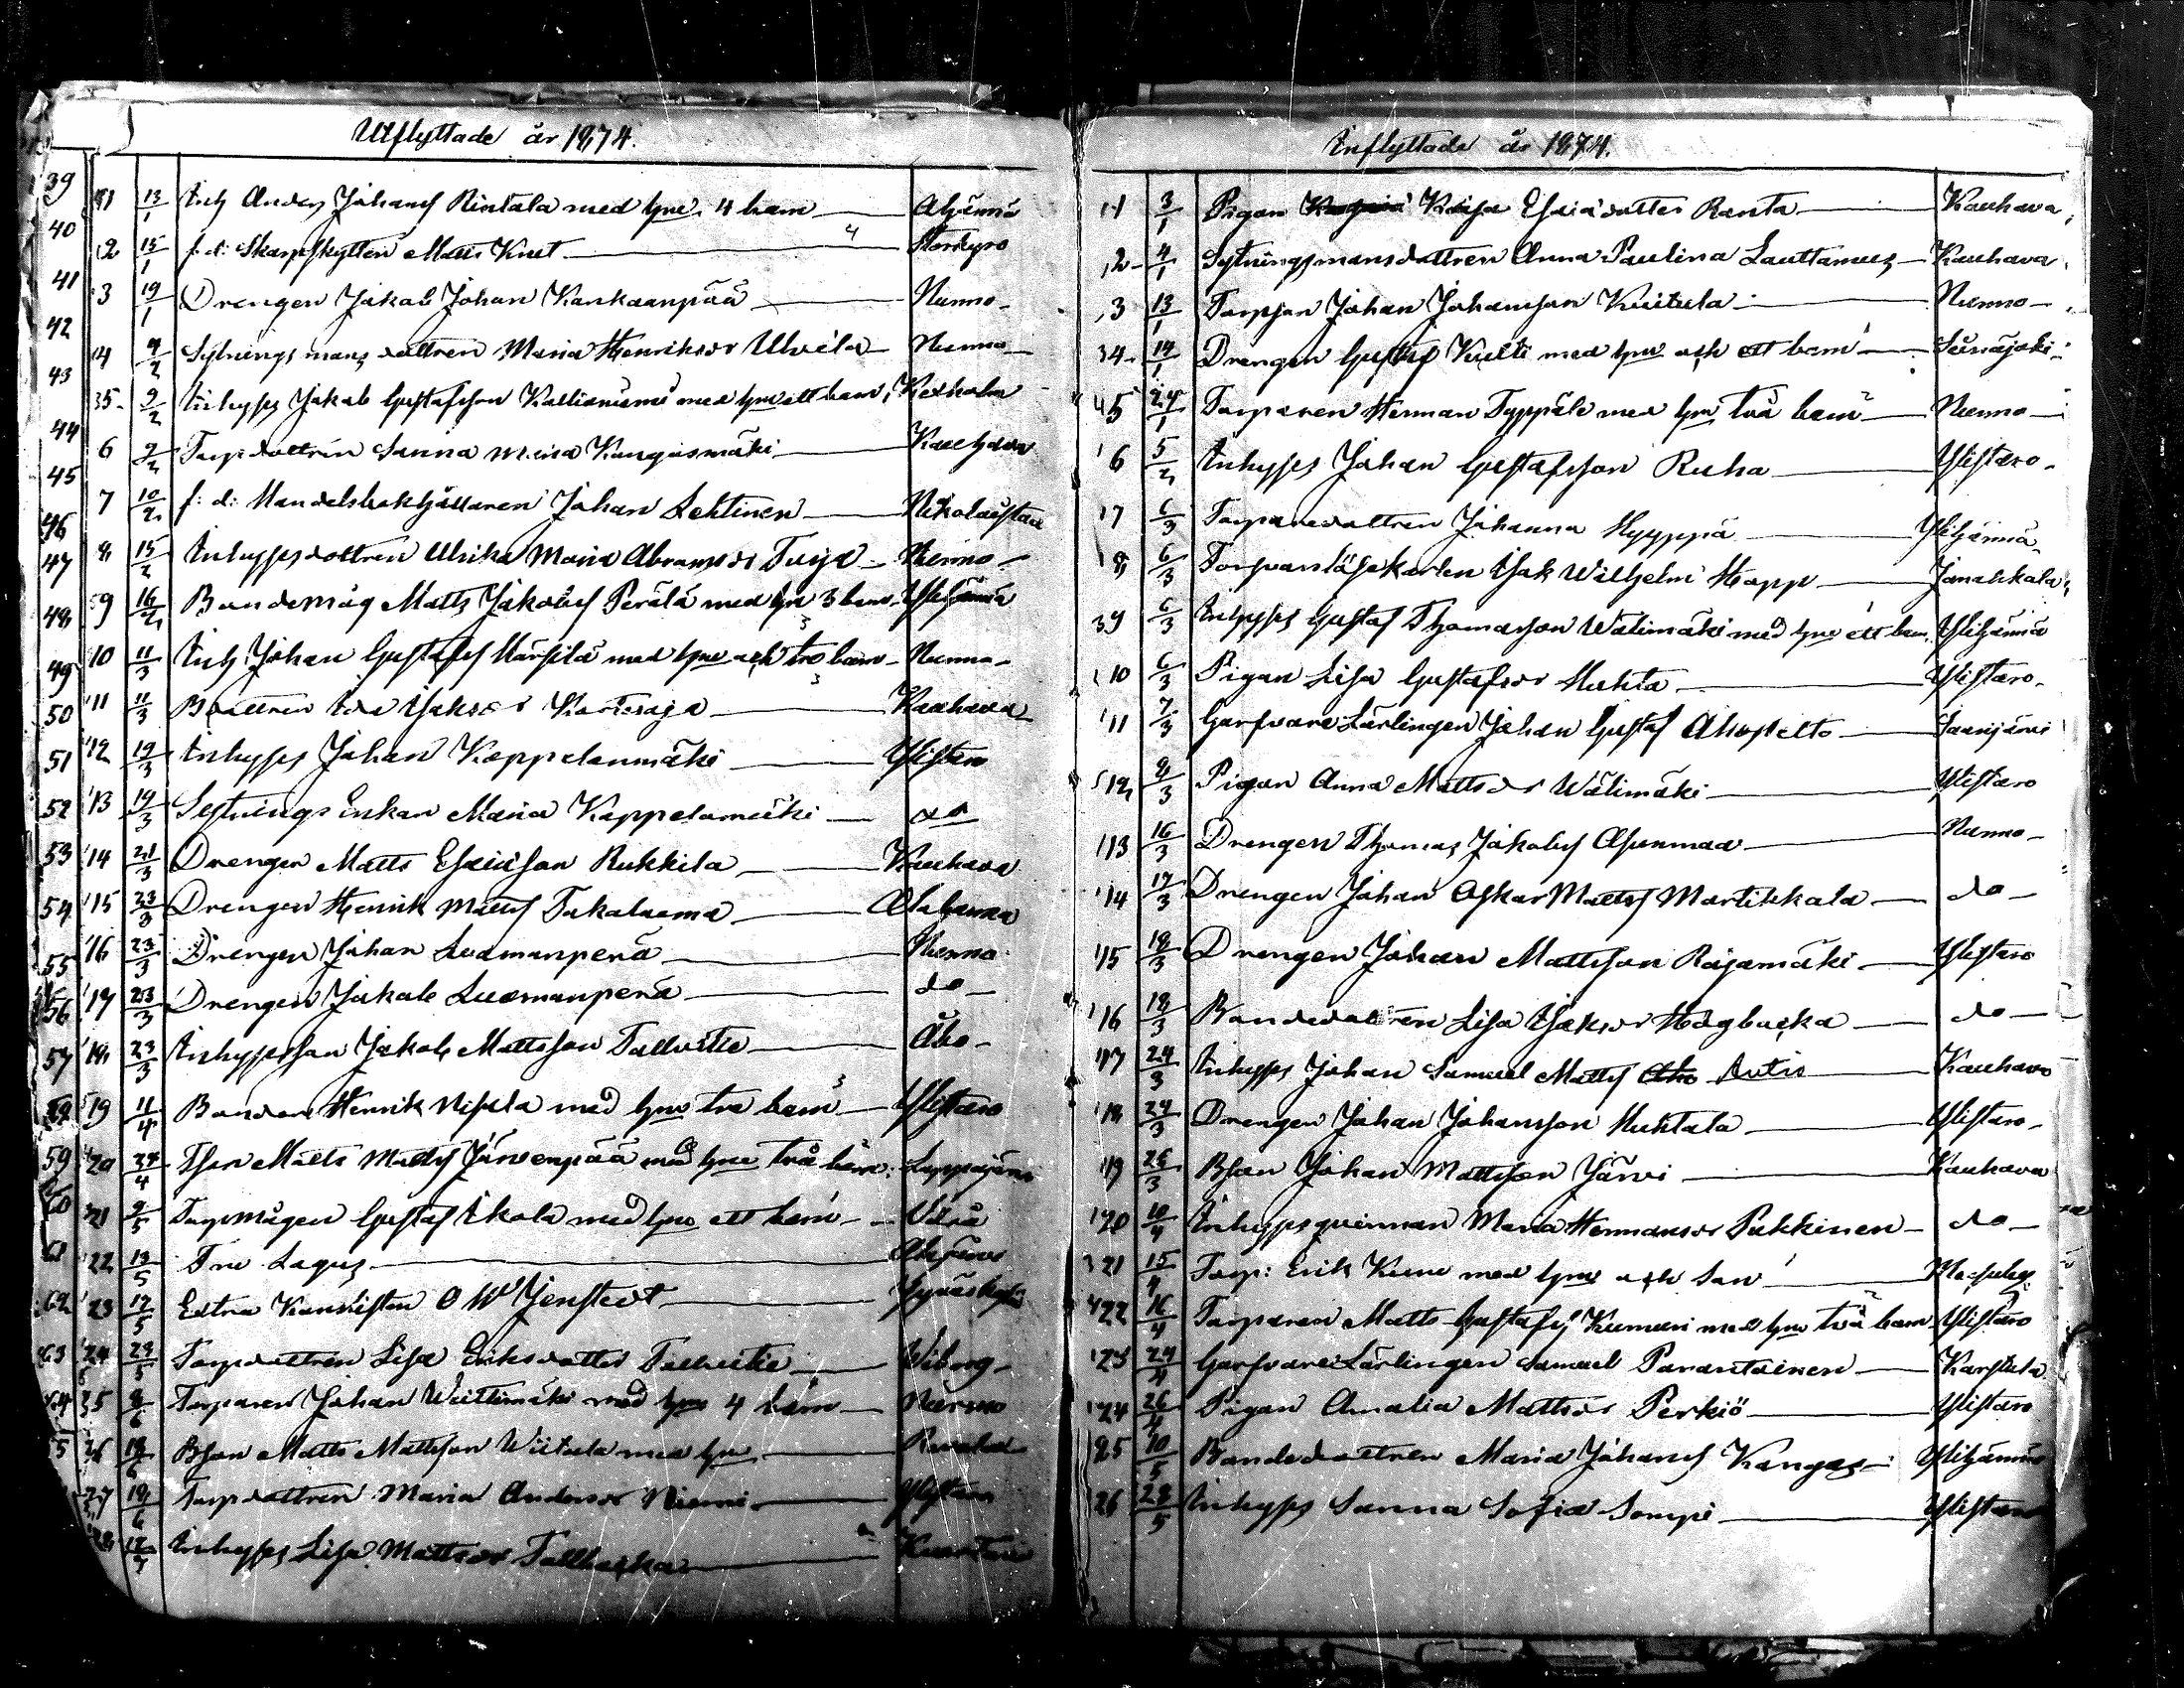 Utflyttade år 1874.
39 1 13/1 Inh Anders Johansf Rintala med hru. 4 barn
40 2 15/1 f: d: Skarpskytten Matts Knut Storkyro
41 3 19/1 Drengen Jakob Johan Kankaanpää Nurmo
42 4 4/2 Sytningsmans dottren Maria Henriksdr Ulvila Nurmo
43 5 9/2 Inhyses Jakob Gustafsson Kallioniemi med hru ett barn, Kexholm
44 6 9/2 Torp dottren Sanna Maria Kangasmäki Kauhava
45 7 10/2 f: d: Handelsbokhållaren Johan Lehtinen Nikolaistad
46 8 15/2 Inhysesdottren Ulrika Maria Abramsdr Nurmo
47 9 16/2 Bondemåg Matts Jakobsf Perälä med hru 3 barn Ylihärmä
48 10 11/3 Inh Johan Gustafsf med hru och tre barn Nurmo
49 11 11/3 Bdottren Ida Isaksdr Kauhava
50 12 19/3 Inhyses Johan Kappelanmäki Ylistaro
51 13 19/3 Sytnings Enkan Maria Kappelamäki do
52 14 21/3 Drengen Matts Esaiasson Rukkila Kauhava
53 15 23/3 Drengen Henrik Mattsf Takaluoma Alahärmä
54 16 23/3 Drengen Johan Luomanperä Nurmo
55 17 23/3 Drengen Jakob Luomanperä do
56 18 23/3 Inhysesson Jakob Mattsson Tallvitie Åbo
57 19 11/4 Bonden Henrik Nisula med hru tre barn Ylistaro
59 20 24/4 Tson Matts Mattsf Järvenpää med hru två barn Lappajärvi
60 21 9/5 Torpmågen Gustaf Ikola med hru ett barn Vörå
61 22 13/5 Fru Lagus Alajärvi
62 23 17/5 Extra Kanslisten O W Jernstedt
63 24 29/5 Torpdottren Lisa Eriksdotter Tallvitie Wiborg
64 25 8/6 Torparen Johan Wiittimäki med hru 4 barn Nurmo
26 18/6 Bson Matts Mattsson Wiitala med hru
27 18/6 Torpdottren Maria Andersdr Niemi Ylistaro
28 17/7 Inhyses Lisa Mattsdr Tallbacka Kuortane
Inflyttade år 1874.
1 3/1 Pigan Kaisa Esaiasdotter Ranta Kauhava
2 4/1 Sytningsmansdottren Anna Paulina Lauttamus Kauhava
3 13/1 Torpson Johan Johansson Kuitula Nurmo
4 14/1 Drengen Gustaf Kielti med hru och ett barn Seinäjoki
5 24/1 Torparen Herman Typpälä med hru två barn Nurmo
6 5/2 Inhyses Johan Gustafsson Ruha Ylistaro
7 6/3 Torparedottren Johanna Hyyppä Ylihärmä
8 6/3 Torfvarslägokarlen Isak Wilhelm Happ Janakkala
9 6/3 Inhyses Gustaf Thomasson Wälimäki med hru ett barn Ylihärmä
10 6/3 Pigan Lisa Gustafsdr Huhta Ylistaro
11 7/3 Garfvare Lärlingen Johan Gustaf Ahopelto Saarijärvi
12 9/3 Pigan Anna Mattsdr Wälimäki Ylistaro
13 16/3 Drengen Thomas Jakobsf Asunmaa Nurmo
14 17/3 Drengen Johan Oskar Mattsf Martikkala do
15 18/3 Drengen Johan Mattsson Rajamäki Ylistaro
16 18/3 Bondedottren Lisa Isaksdr Högbacka do
17 24/3 Inhyses Johan Samuel Mattsf Aho Autio Kauhava
18 24/3 Drengen Johan Johansson Huhtala Ylistaro
19 26/3 Bson Johan Mattsson Järvi Kauhava
20 10/4 Inhysesqvinnan Maria Hermansdr Pukkinen do
21 15/4 Torp: Erik Kumu med hru och son
22 16/4 Torparen Matts Gustafsf med hru två barn Ylistaro
23 24/4 Garfvare Lärlingen Samuel Parantainen Karstula
24 26/4 Pigan Amalia Mattsdr Perkiö Ylistaro
25 10/5 Bondedottren Maria Johansf Kangas Ylihärmä
26 28/5 Inhyses Sanna Sofia Sompi Ylistaro